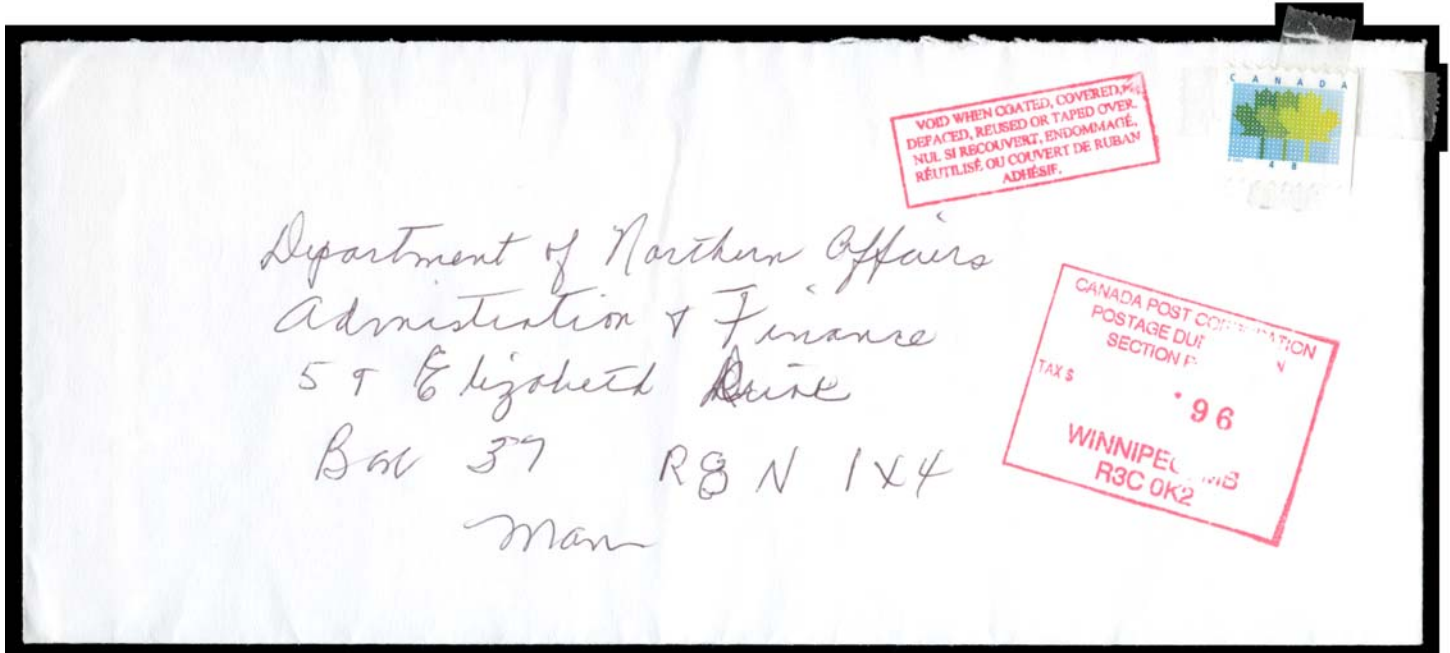 VOID WHEN COATED, COVERED,
DEFACED, REUSED OR TAPED OVER
NUL SI RECOUVERT, ENDOMMAGÉ,
RÉUTILISÉ OU COUVERT DE RUBAN
ADHÉSIF.
CANADA
48
Department of Northern Affairs
Admistration & Finance
59 Elizabeth Drive
Box 37 R8N 1X4
Man
CANADA POST
POSTAGE
SECTION
TAX $
96
WINNIPEG MB
R3C 0K2